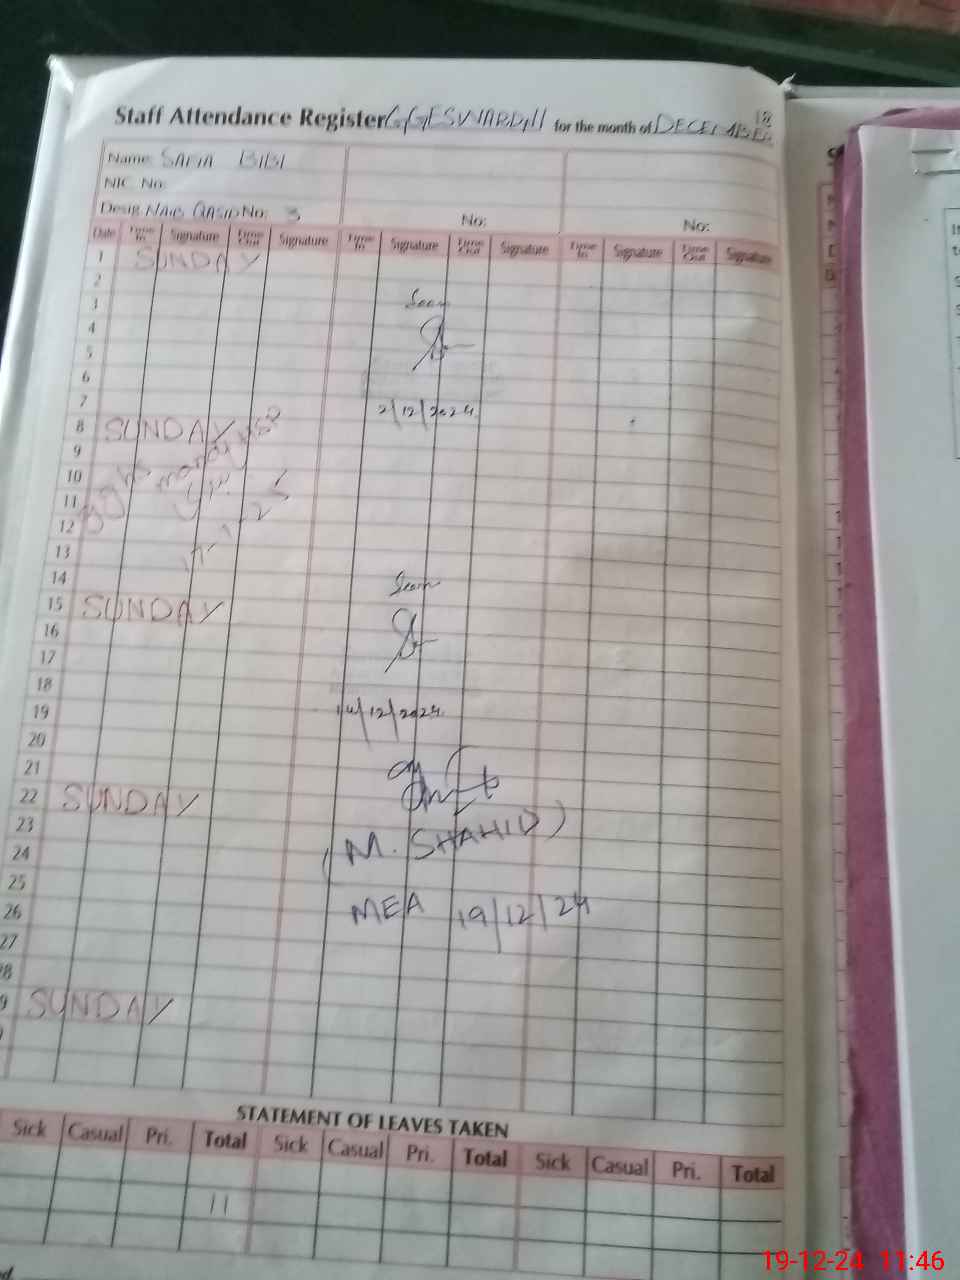 Staff Attendance Register GGES WARD 11 for the month of DECEMBER
18
Name: SAFIA BIBI
NIC No:
Desig. NAIB QASID No: 3 No: No:
Date Time In Signature Time Out Signature Time In Signature Time Out Signature Time In Signature Time Out Signature
1 SUNDAY
2
3 Seen
4
5
6
7 2/12/2024
8 SUNDAY
9
10
11
12
13
14 Seen
15 SUNDAY
16
17
18
19 14/12/2024
20
21
22 SUNDAY
23 (M. SHAHID)
24
25
26 MEA 19/12/24
27
28
9 SUNDAY
STATEMENT OF LEAVES TAKEN
Sick Casual Pri. Total Sick Casual Pri. Total Sick Casual Pri. Total
11
19-12-24 11:46